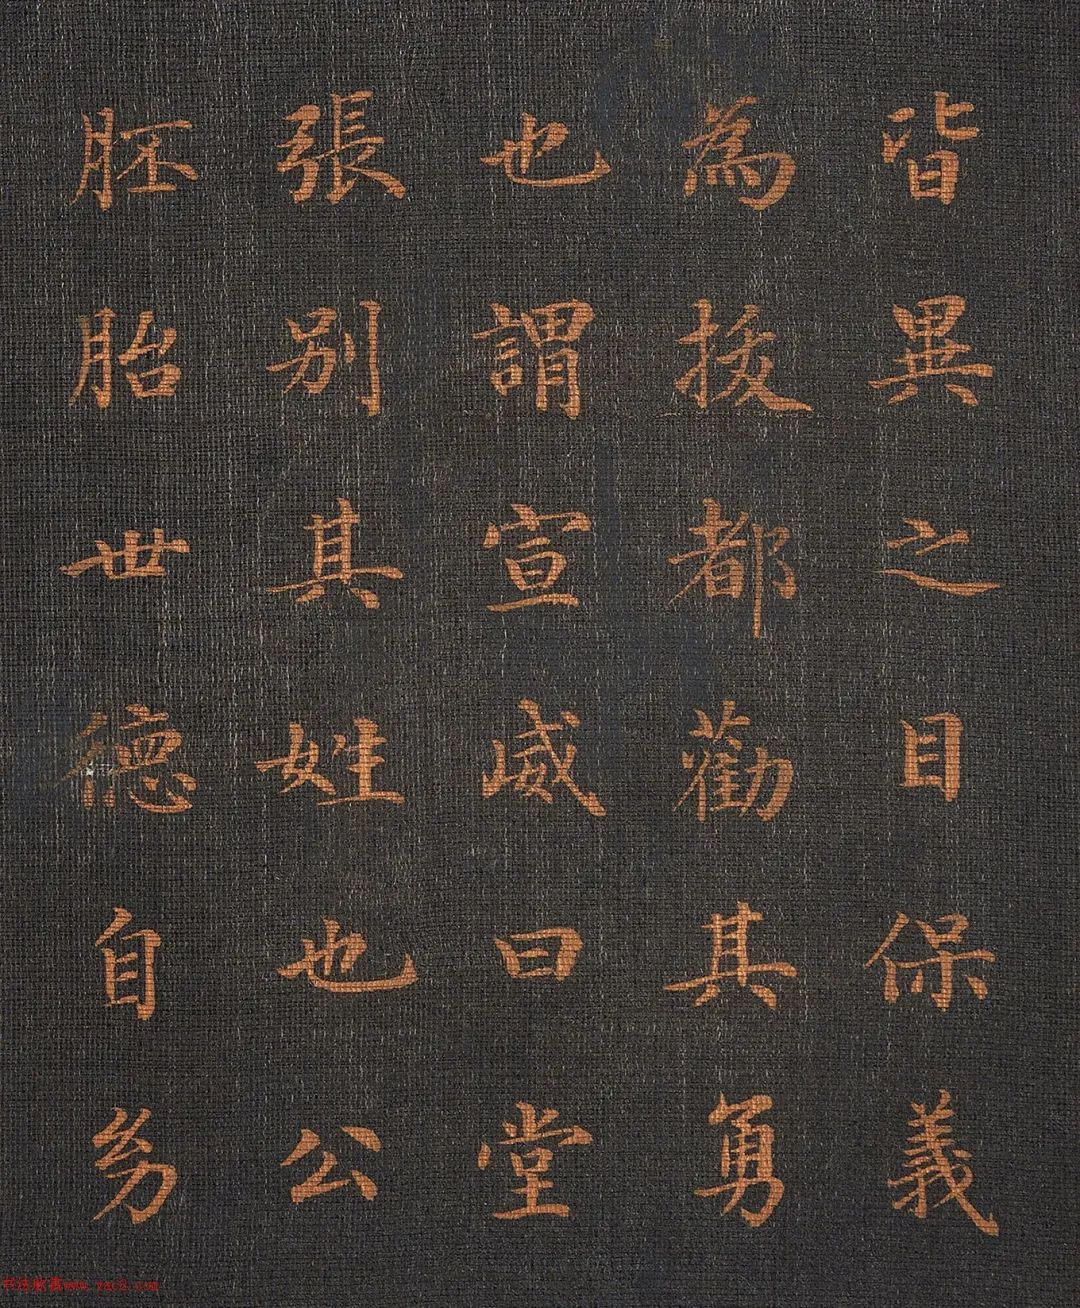 皆異之目保義
為拔都勸其勇
也謂宣威曰堂
張別其姓也公
胚胎世德自幼
书法欣赏www.yac8.com